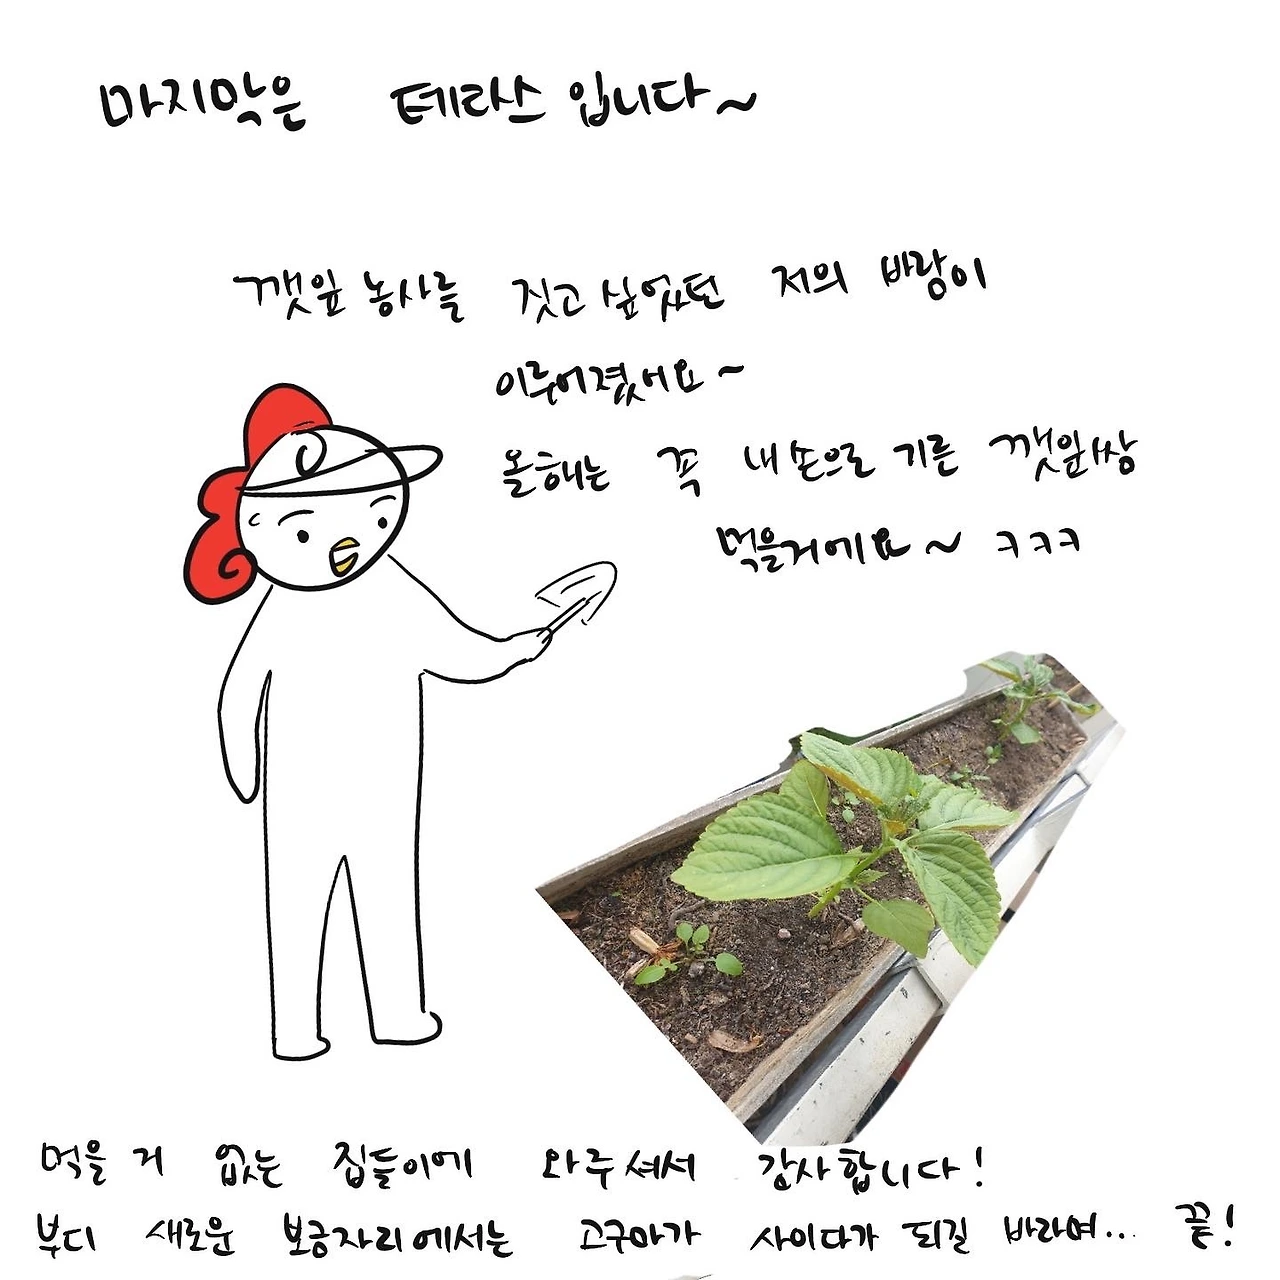 마지막은 테라스 입니다~
깻잎 농사를 짓고 싶었던 저의 바람이
이루어졌어요~
올해는 꼭 내 손으로 기른 깻잎쌈
먹을거에요~ ㅋㅋㅋ
먹을 거 없는 집들이에 와주셔서 감사합니다!
부디 새로운 보금자리에서는 고구마가 사이다가 되길 바라며... 끝!